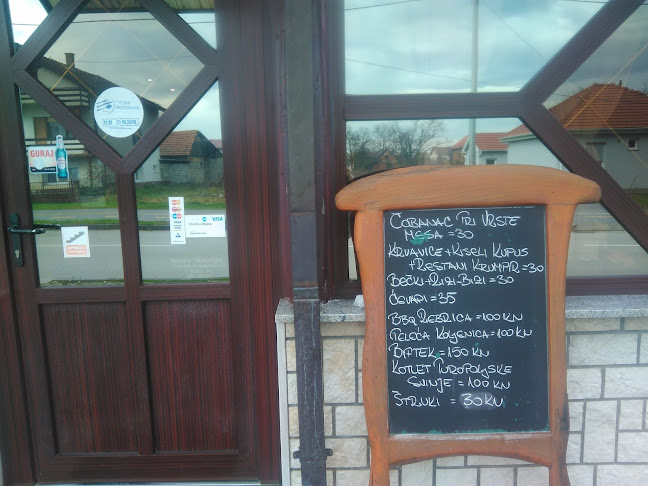 GURAJ
VISA
ČOBANAC TRI VRSTE
MESA = 30
KRVAVICE + KISELI KUPUS
+ RESTANI KRUMPIR = 30
BEČKI + RIZI-BIZI = 30
ĆEVAPI = 35
BBQ REBRICA = 100 KN
TELEĆA KOLJENICA = 100 KN
BIFTEK = 150 KN
KOTLET TUROPOLJSKE
SVINJE = 100 KN
ŠTRUKLI = 30 KN